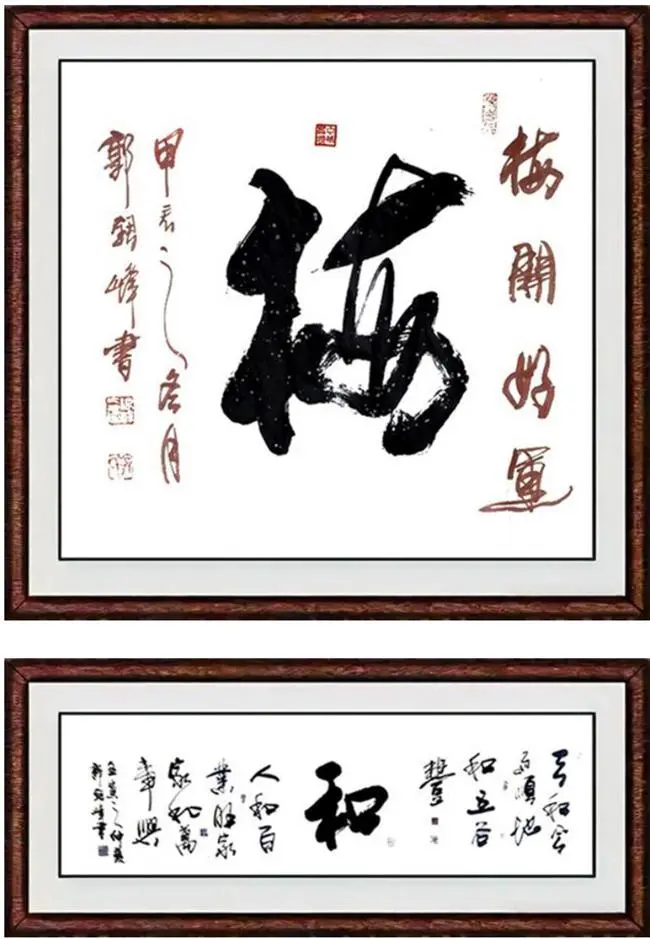 梅開好運
梅
甲辰之冬月
郭峰書
天和
順地
和五谷
豐
和
人和百
業旺家
家和萬
事興
壬寅之仲
郭峰書